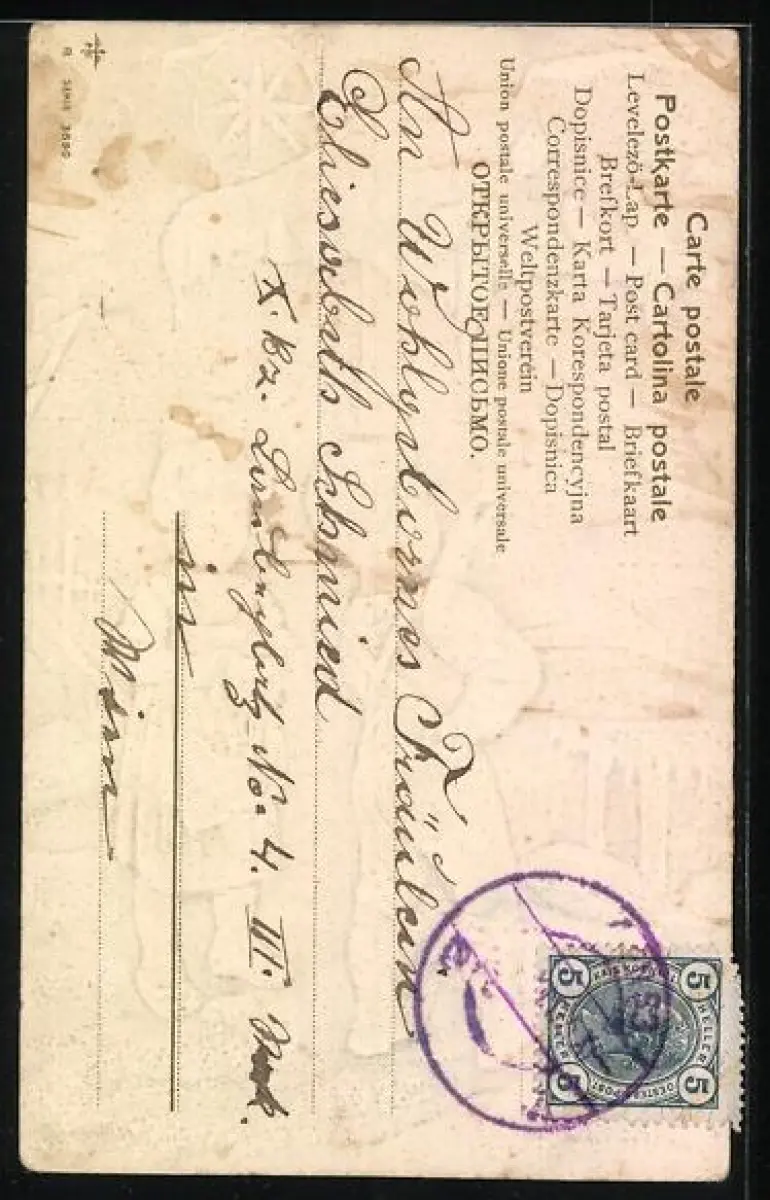 Carte postale
Postkarte — Cartolina postale
Levelező-Lap — Post card — Briefkaart
Brefkort — Tarjeta postal
Dopisnice — Karta Korespondencyjna
Correspondenzkarte — Dopisnica
Weltpostverein
Union postale universelle — Unione postale universale
ОТКРЫТОЕ ПИСЬМО.
An Wohlgebornes Fräulein
Schmied
X. Bz. No. 4. III.
in
Wien
5 5
HELLER HELLER
5 5
SERIE